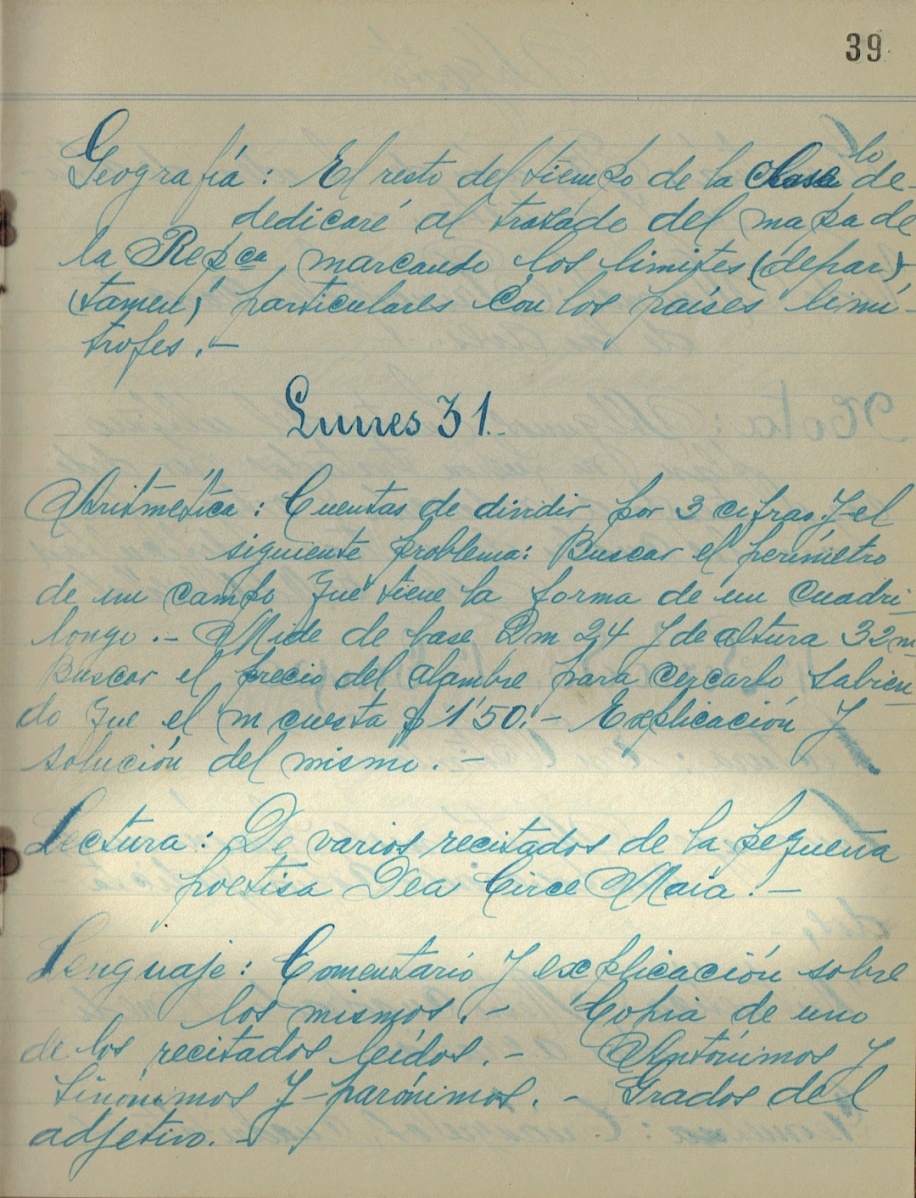 39
Geografía: El resto del tiempo de la clase lo de-
dedicaré al trazado del mapa de
la Repca, marcando los limites (depar)
(tamen) particulares con los países limí-
trofes.—
Lunes 31.
Aritmética: Cuentas de dividir por 3 cifras y el
siguiente problema: Buscar el perímetro
de un campo que tiene la forma de un cuadri-
longo.— Mide de base Dm 24 y de altura 32 m
Buscar el precio del alambre para cercarlo sabien-
do que el m cuesta $ 1'50.— Explicación y
solución del mismo.—
Lectura: De varios recitados de la pequeña
poetisa Dea Circe Maia.—
Lenguaje: Comentario y explicación sobre
los mismos.— Copia de uno
de los recitados leídos.— Antónimos y
sinónimos y parónimos.— Grados del
adjetivo.—